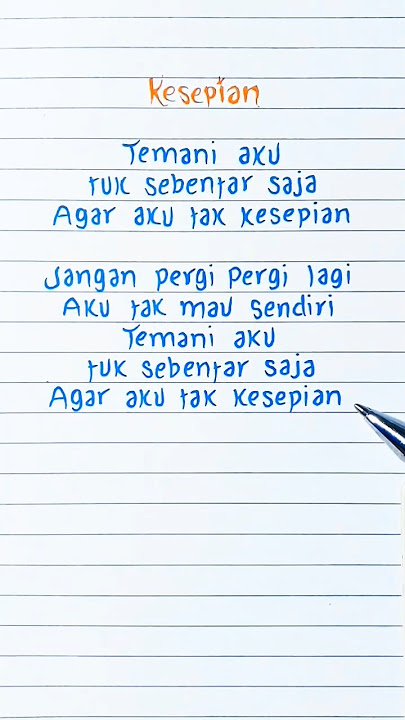 Kesepian
Temani aku
tuk sebentar saja
Agar aku tak kesepian
Jangan pergi pergi lagi
Aku tak mau sendiri
Temani aku
tuk sebentar saja
Agar aku tak kesepian